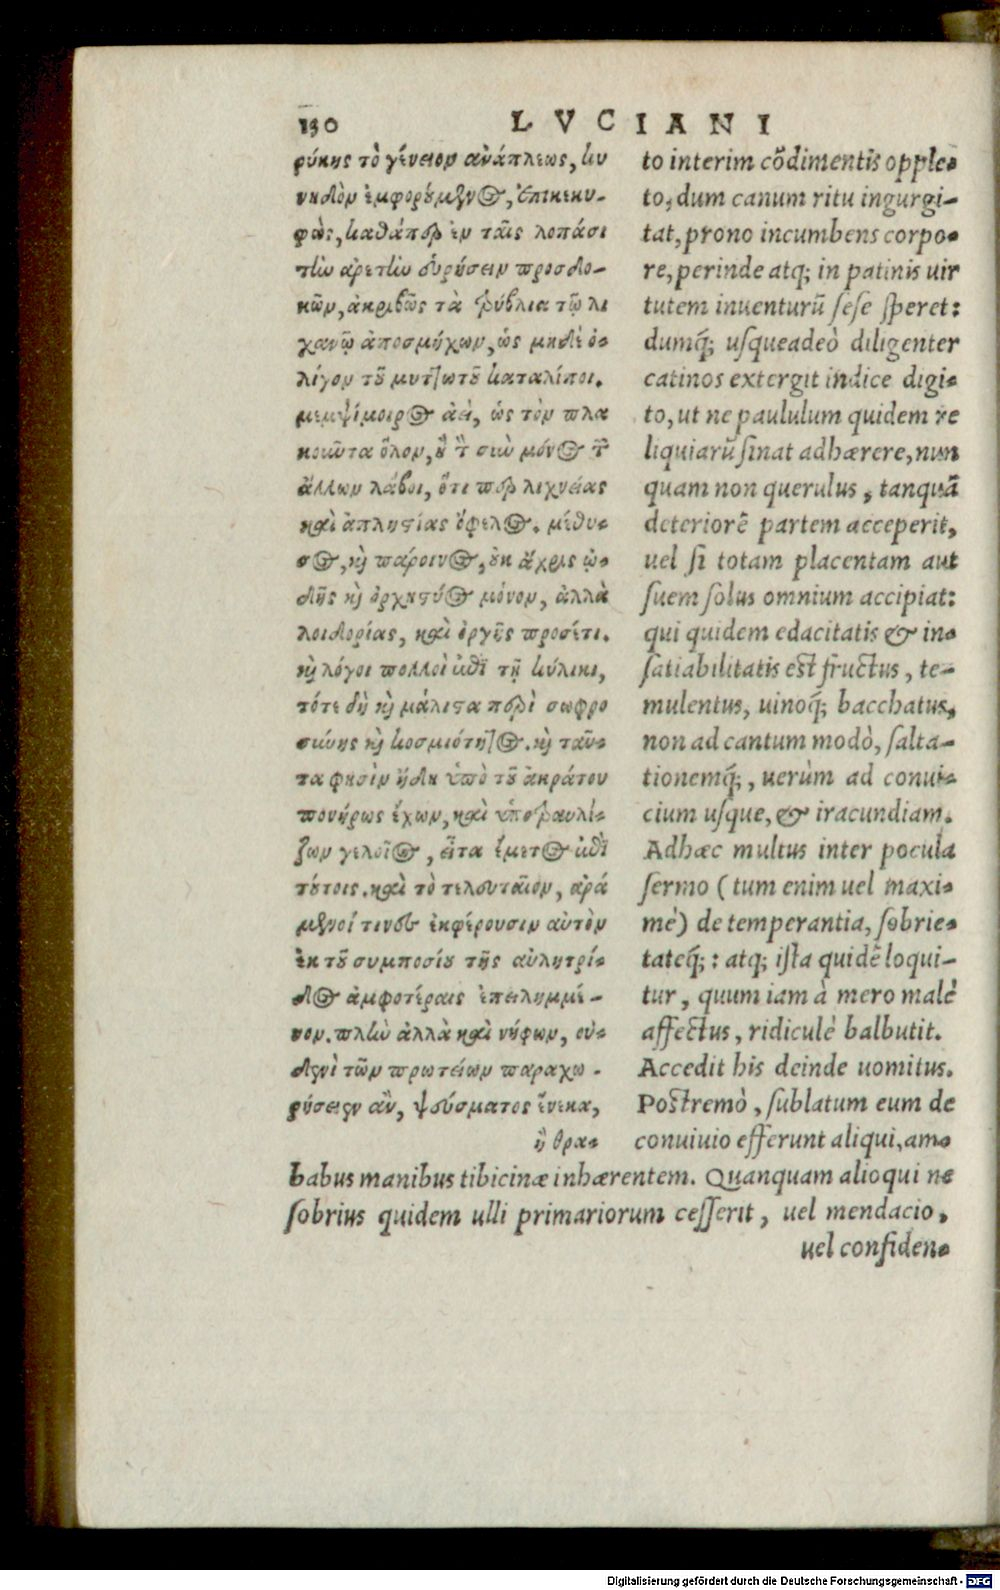 130 LVCIANI
ρύκης τὸ γένειον ἀνάπλεως, κυ
νηδὸν ἐμφορούμενος, ἐπικεκυ-
φὼς, καθάπερ ἐν ταῖς λοπάσι
τὴν ἀρετὴν εὑρήσειν προσδο-
κῶν, ἀκριβῶς τὰ τρύβλια τῷ λι
χανῷ ἀποσμήχων, ὡς μηδὲ ὀ-
λίγον τοῦ μυττωτοῦ καταλίποι.
μεμψίμοιρος ἀεὶ, ὡς τὸν πλα
κοῦντα ὅλον, ἢ τὸν σιὼ μόνος τῶν
ἄλλων λάβοι, ὅτι περ λιχνείας
καὶ ἀπληστίας ὄφελος. μέθυ-
σος, καὶ πάροινος, οὐκ ἄχρις ᾠ-
δῆς καὶ ὀρχηστύος μόνον, ἀλλὰ
λοιδορίας, καὶ ὀργῆς προσέτι.
καὶ λόγοι πολλοὶ ἐπὶ τῇ κύλικι,
τότε δὴ καὶ μάλιστα περὶ σωφρο
σύνης καὶ κοσμιότητος. καὶ ταῦ-
τα φησὶν ἤδη ὑπὸ τοῦ ἀκράτου
πονήρως ἔχων, καὶ ὑποτραυλί-
ζων γελοῖος, εἶτα ἔμετος ἐπὶ
τούτοις. καὶ τὸ τελευταῖον, ἀρά
μενοί τινες ἐκφέρουσιν αὐτὸν
ἐκ τοῦ συμποσίου τῆς αὐλητρί-
δος ἀμφοτέραις ἐπειλημμέ-
νον. πλὴν ἀλλὰ καὶ νήφων, οὐ-
δενὶ τῶν πρωτείων παραχω-
ρήσειεν ἂν, ψεύσματος ἕνεκα,
ἢ θρα-
to interim cõdimentis opple-
to, dum canum ritu ingurgi-
tat, prono incumbens corpo-
re, perinde atq; in patinis uir
tutem inuenturũ sese speret:
dumq́; usqueadeò diligenter
catinos extergit indice digi-
to, ut ne paululum quidem re
liquiarũ sinat adhærere, nun
quam non querulus, tanquã
deteriorẽ partem acceperit,
uel si totam placentam aut
suem solus omnium accipiat:
qui quidem edacitatis & in-
satiabilitatis est fructus, te-
mulentus, uinoq́; bacchatus,
non ad cantum modò, salta-
tionemq́;, uerùm ad conui-
cium usque, & iracundiam.
Adhæc multus inter pocula
sermo (tum enim uel maxi-
mè) de temperantia, sobrie-
tateq́;: atq; ista quidẽ loqui-
tur, quum iam à mero malè
affectus, ridiculè balbutit.
Accedit his deinde uomitus.
Postremò, sublatum eum de
conuiuio efferunt aliqui, am-
babus manibus tibicinæ inhærentem. Quanquam alioqui ne
sobrius quidem ulli primariorum cesserit, uel mendacio,
uel confiden-
Digitalisierung gefördert durch die Deutsche Forschungsgemeinschaft - DFG